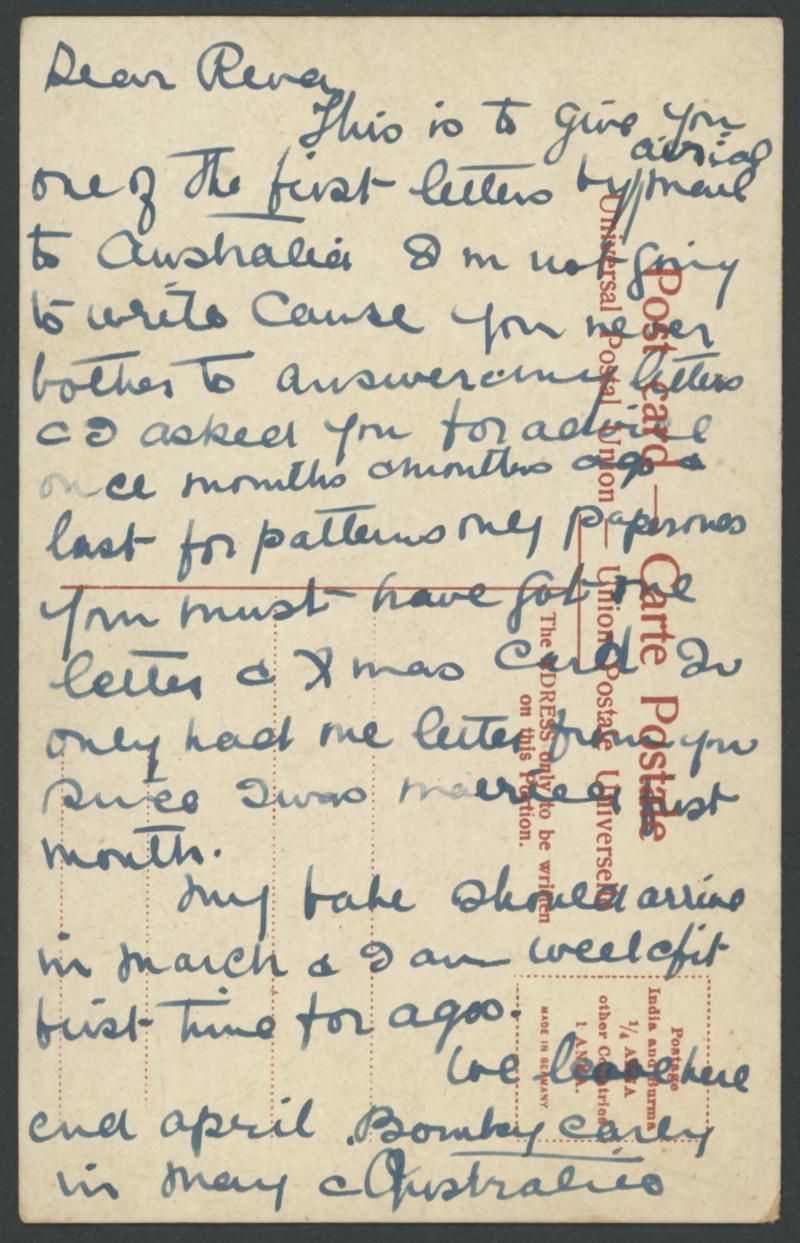 Dear Reva
This is to give you
aerial
one of the first letters by mail
to Australia I'm not going
to write Cause you never
bother to answer any letters
& I asked you for advice
once months & months ago &
last for patterns only paper ones
You must have got one
letter & Xmas Card I've
only had one letter from you
since I was married last
month.
My babe should arrive
in March & I am well & fit
first time for ages.
We leave here
end april Bombay early
in May & Australia
Post card — Carte Postale
Universal Postal Union — Union Postale Universelle
The ADDRESS only to be written
on this Portion.
Postage
India and Burma
1/4 ANNA
other Countries
1 ANNA.
MADE IN GERMANY